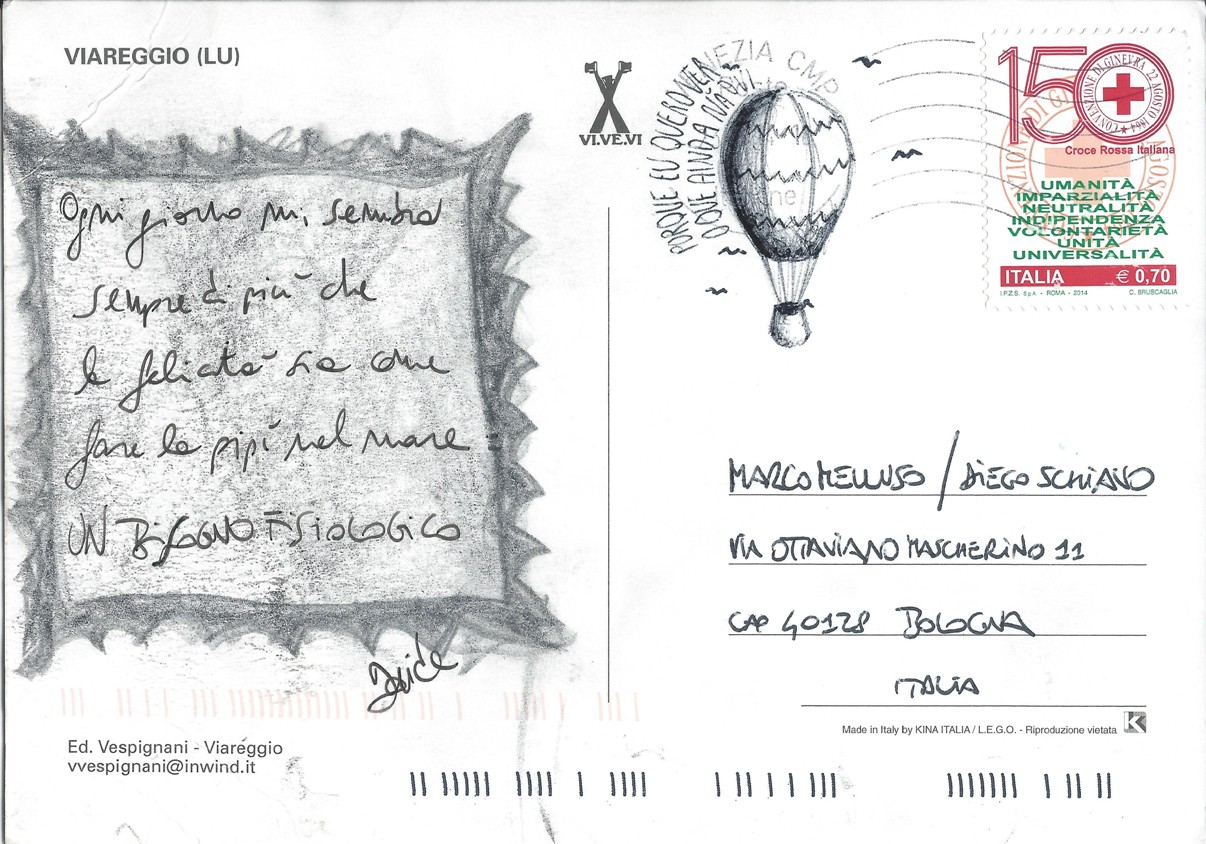 VIAREGGIO (LU)
Ogni giorno mi sembra
sempre di più che
la felicità sia come
fare la pipì nel mare =
UN BISOGNO FISIOLOGICO
Ed. Vespignani - Viareggio
vvespignani@inwind.it
VI.VE.VI
PORQUE EU QUERO VER
O QUE AINDA NÃO VI
NEZIA CMP
150
CONVENZIONE DI GINEVRA 22 AGOSTO 1864
Croce Rossa Italiana
UMANITÀ
IMPARZIALITÀ
NEUTRALITÀ
INDIPENDENZA
VOLONTARIETÀ
UNITÀ
UNIVERSALITÀ
ITALIA € 0,70
I.P.Z.S. SpA - ROMA - 2014 C. BRUSCAGLIA
MARCO MELLUSO / DIEGO SCHIANO
VIA OTTAVIANO MASCHERINO 11
CAP 40128 BOLOGNA
ITALIA
Made in Italy by KINA ITALIA / L.E.G.O. - Riproduzione vietata K